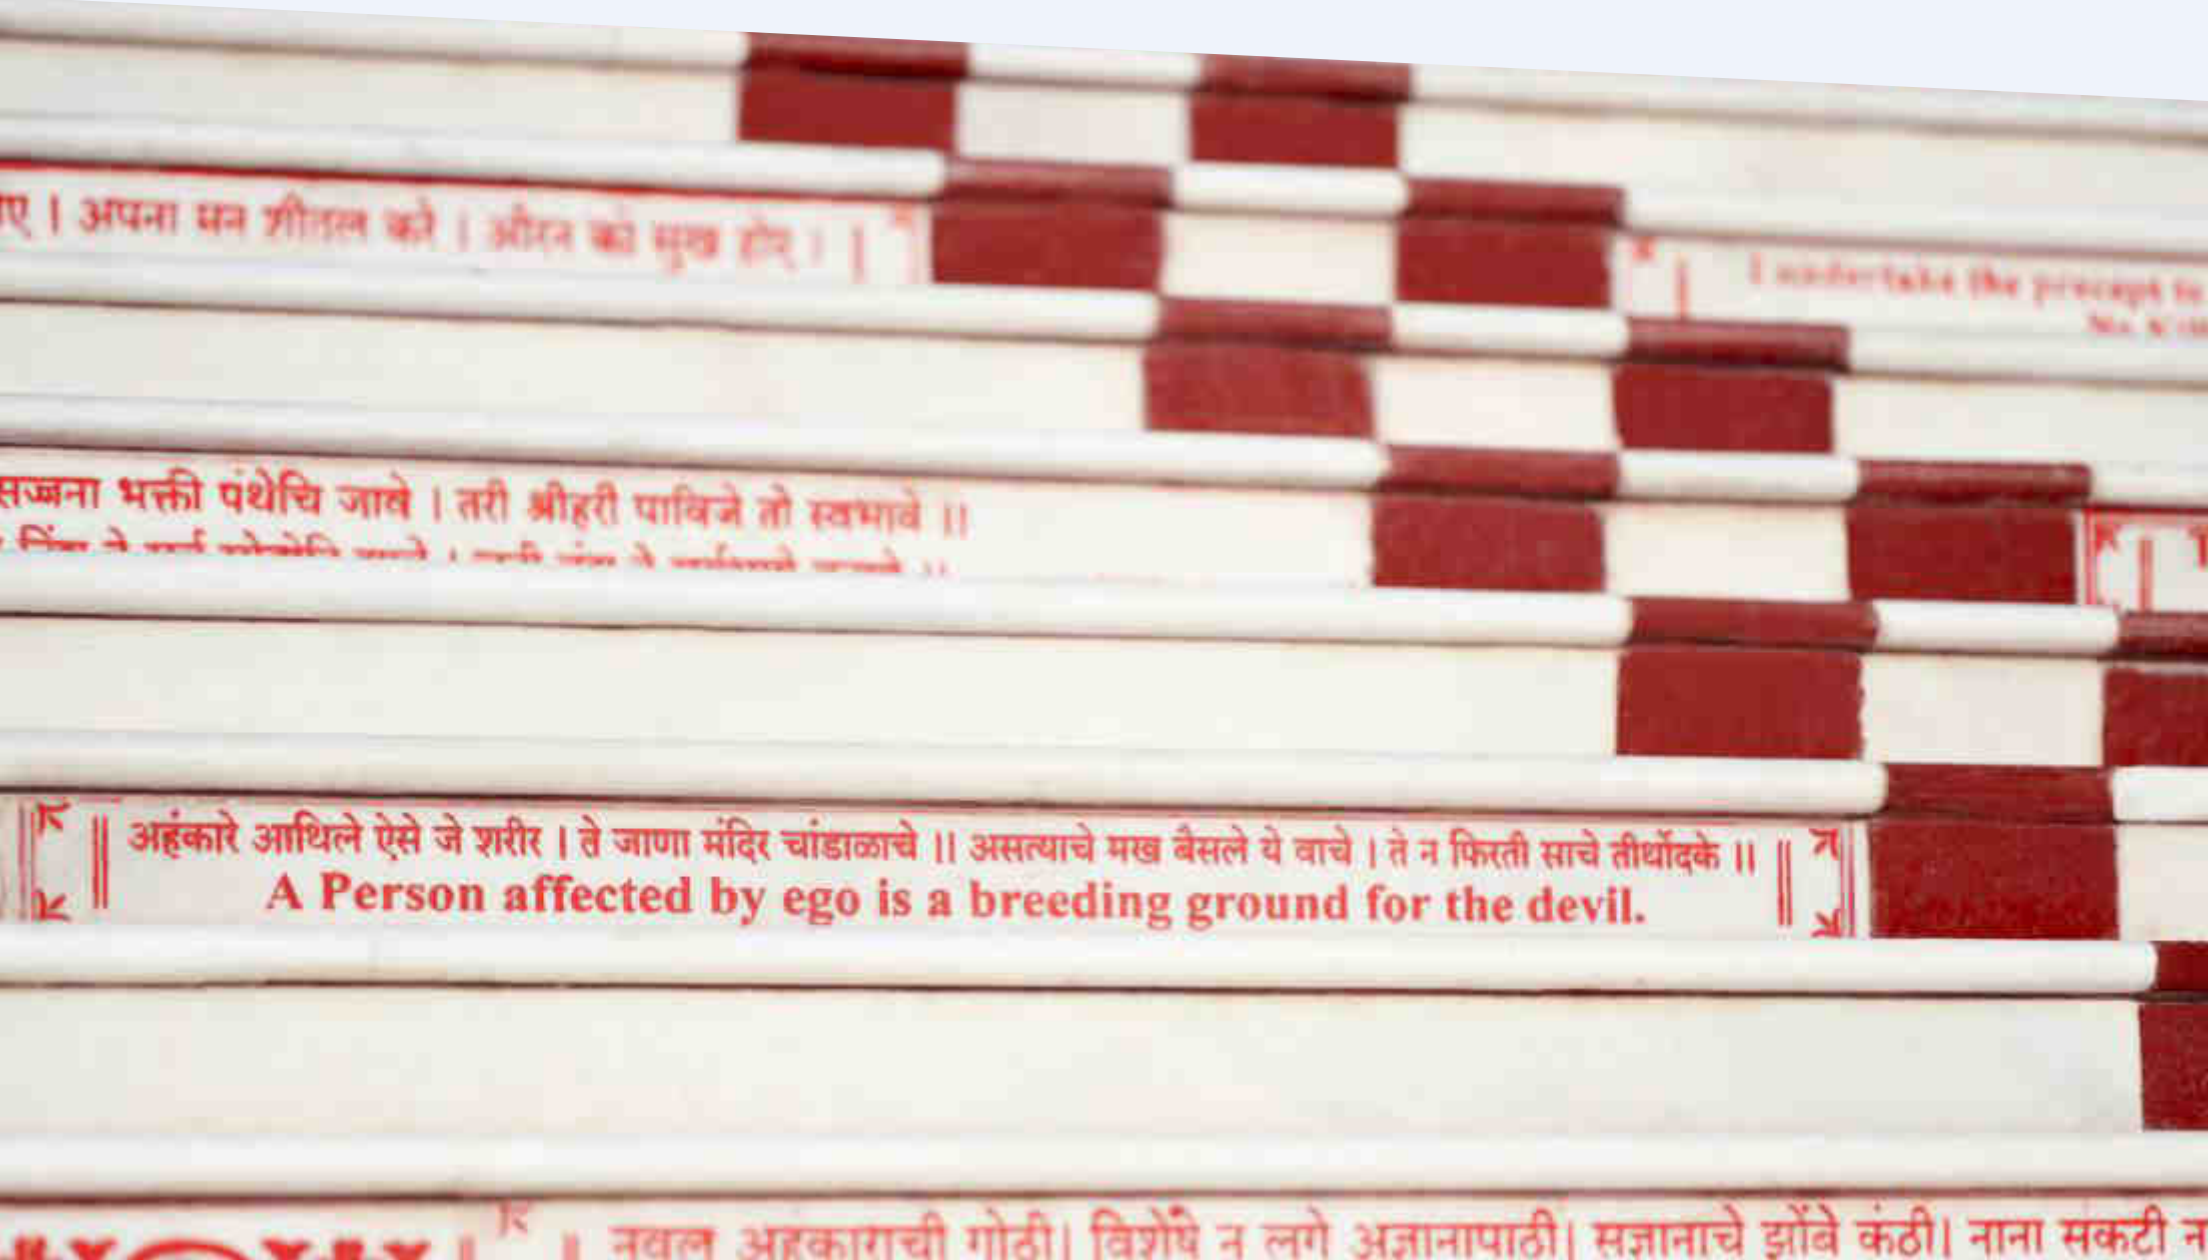 ए । अपना मन शीतल करे । औरन को सुख होए ।
I undertake the precept to
सज्जना भक्ती पंथेचि जावे । तरी श्रीहरी पाविजे तो स्वभावे ॥
अहंकारे आथिले ऐसे जे शरीर । ते जाणा मंदिर चांडाळाचे ॥ असत्याचे मख बैसले ये वाचे । ते न फिरती साचे तीर्थोदके ॥
A Person affected by ego is a breeding ground for the devil.
नवल अहंकाराची गोठी। विशेषे न लगे अज्ञानापाठी। सज्ञानाचे झोंबे कंठी। नाना संकटी